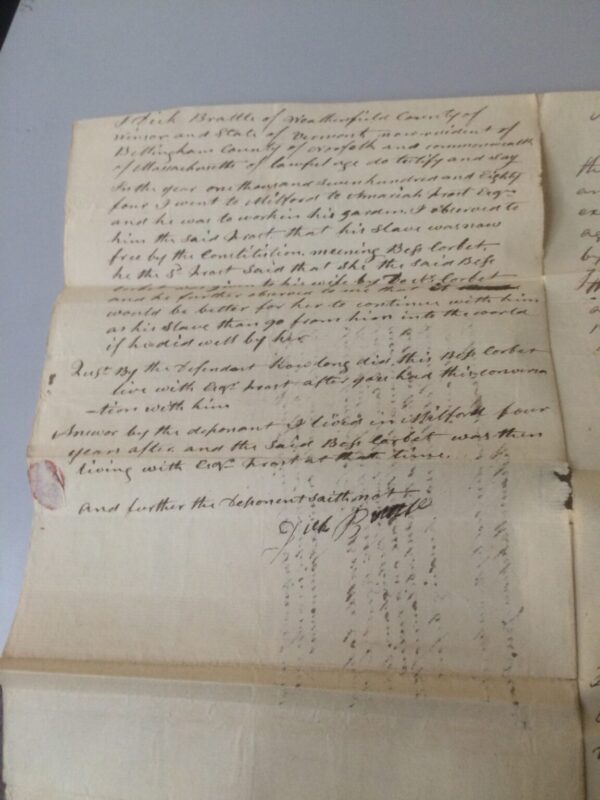 I Dick Brattle of Weathersfield County of
Winsor and State of Vermont now resident of
Bellingham County of Norfolk and commonwealth
of Massachusetts of lawful age do testify and say
In the year one thousand seven hundred and Eighty
four I went to Milford to Amariah Frost Esqr
and he was to work in his garden. I observed to
him the said Frost that his Slave was now
free by the Constitution, meening Bess Corbet
he the Sd Frost said that she the said Bess
Corbet was given to his wife by Doctr Corbet
and he further observed to me that it
would be better for her to continue with him
as his Slave than go from him into the world
if he did well by her
Quest By the Defendant How long did this Bess Corbet
live with Esqr Frost after you had this conversa
-tion with him
Answer by the deponant I lived in Milford four
years after and the said Bess Corbet was then
living with Esqr Frost at that time.
And further the Deponent saith not
Dick